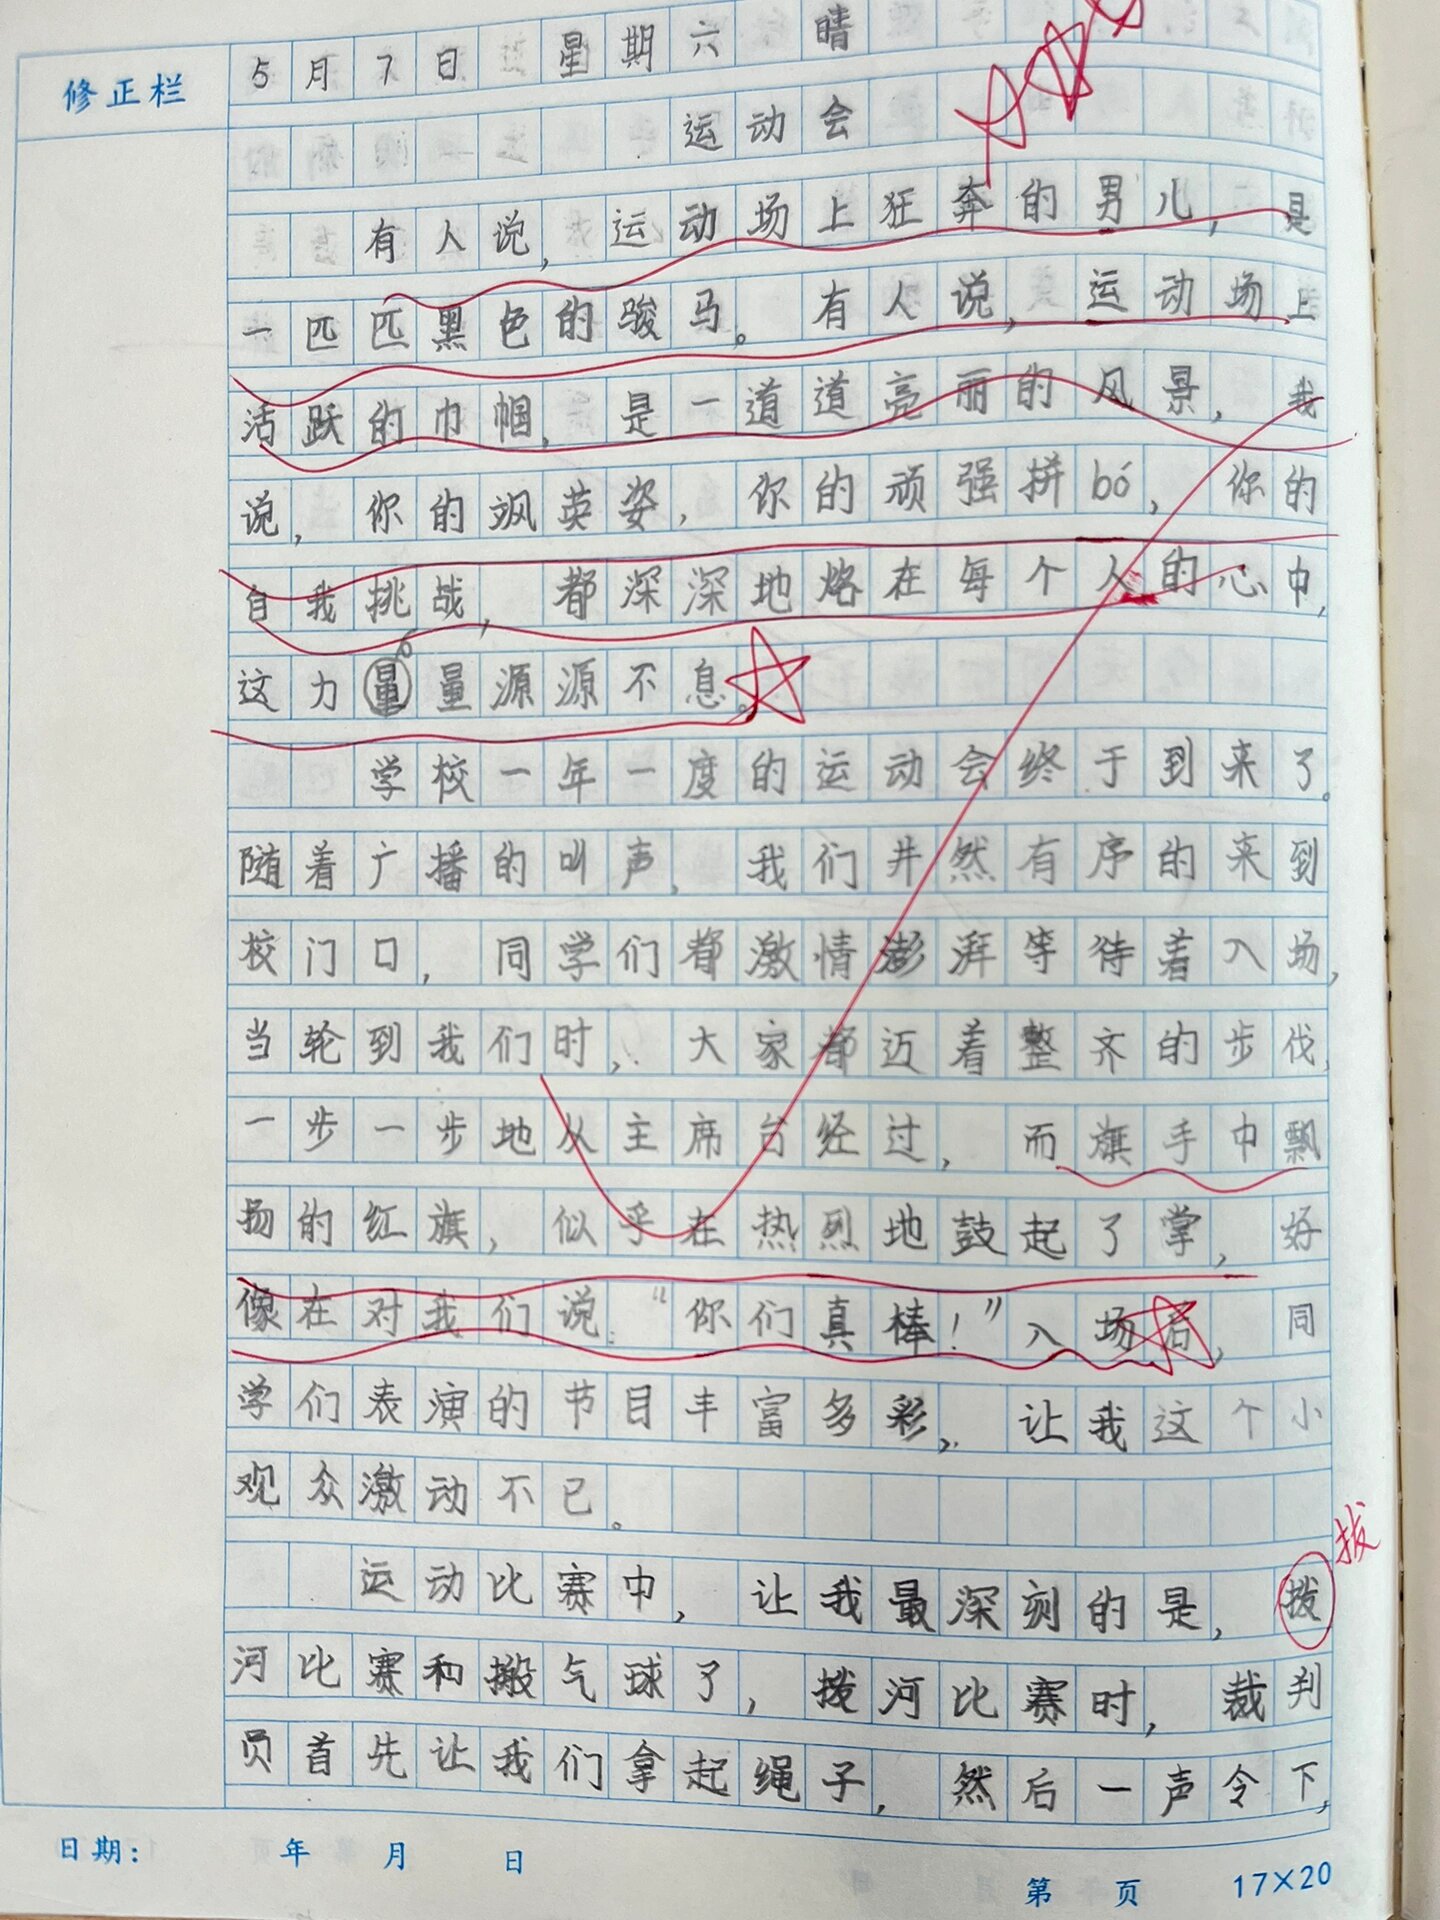 修正栏
5月7日 星期六 晴
运动会
有人说，运动场上狂奔的男儿，是
一匹匹黑色的骏马。有人说，运动场上
活跃的巾帼，是一道道亮丽的风景，我
说，你的飒英姿，你的顽强拼bó，你的
自我挑战，都深深地烙在每个人的心中，
这力量量源源不息。
学校一年一度的运动会终于到来了。
随着广播的叫声，我们井然有序的来到
校门口，同学们都激情澎湃等待着入场，
当轮到我们时，大家都迈着整齐的步伐，
一步一步地从主席台经过，而旗手中飘
扬的红旗，似乎在热烈地鼓起了掌，好
像在对我们说：“你们真棒！”入场后，同
学们表演的节目丰富多彩，让我这个小
观众激动不已。
拔
运动比赛中，让我最深刻的是，拨
河比赛和搬气球了，拨河比赛时，裁判
员首先让我们拿起绳子，然后一声令下，
日期： 年 月 日
第 页 17×20